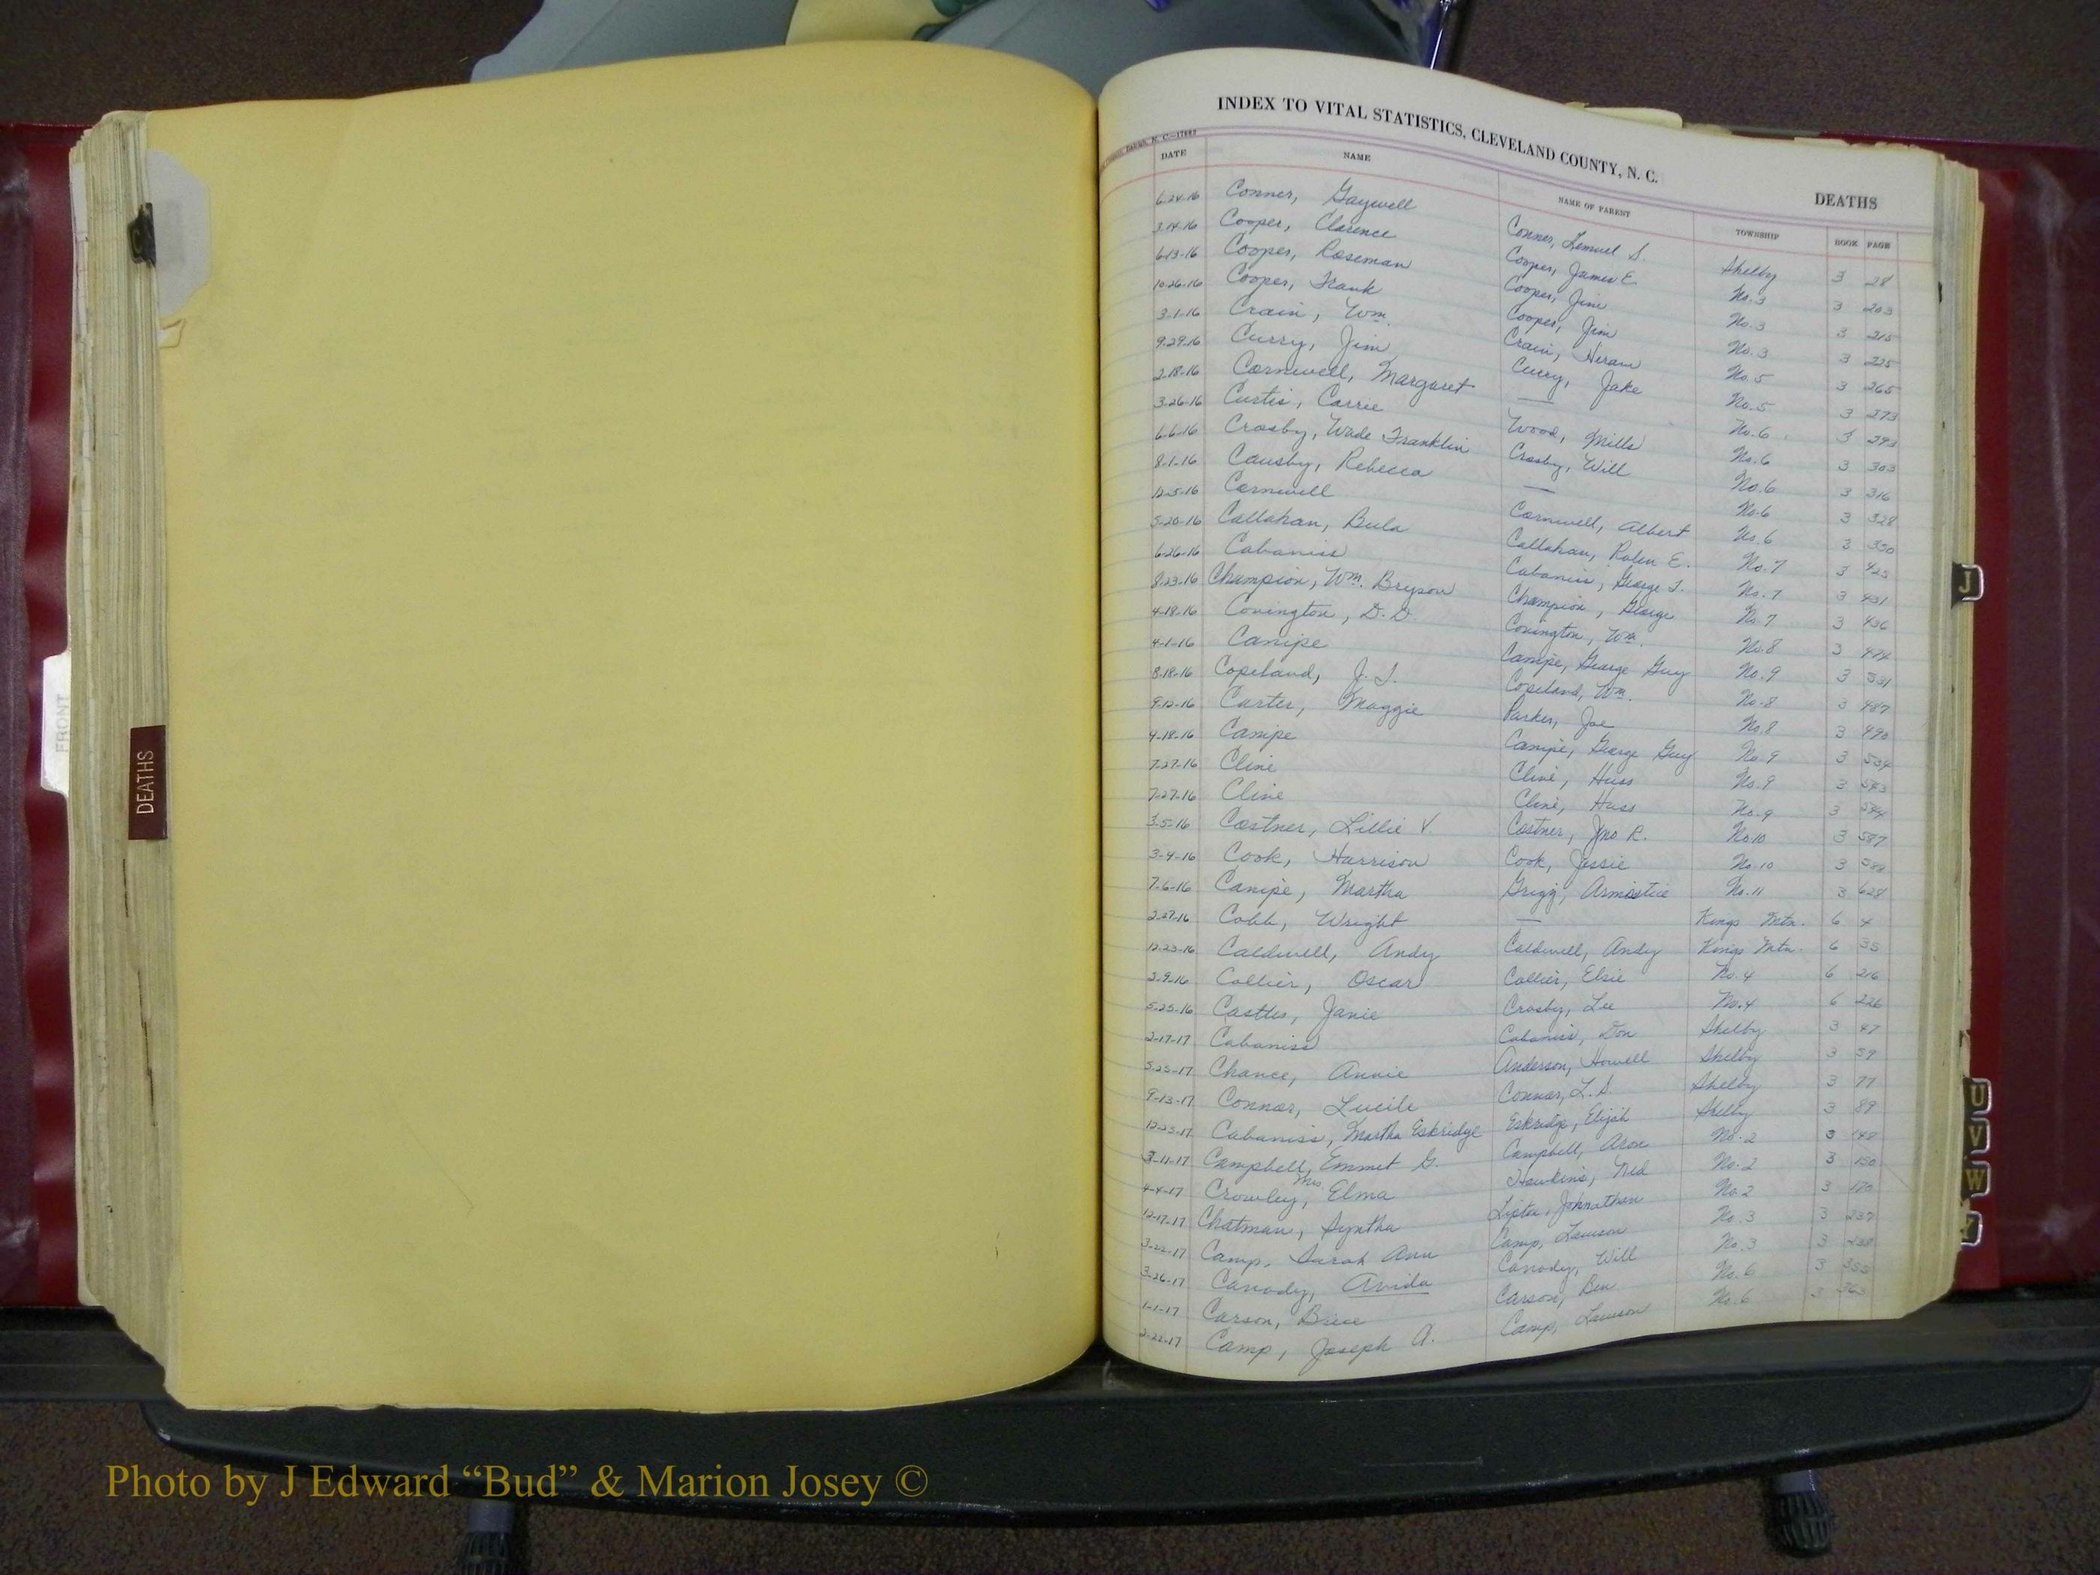 INDEX TO VITAL STATISTICS, CLEVELAND COUNTY, N. C.
DEATHS
DATE NAME NAME OF PARENT TOWNSHIP BOOK PAGE
6-24-16 Conner, Gaywell Conner, Lemuel S. Shelby 3 28
3-14-16 Cooper, Clarence Cooper, James E. No. 3 3 203
6-13-16 Cooper, Roseman Cooper, Jim No. 3 3 215
10-26-16 Cooper, Frank Cooper, Jim No. 3 3 225
3-1-16 Crain, Wm. Crain, Hiram No. 5 3 265
9-29-16 Curry, Jim Curry, Jake No. 5 3 273
2-18-16 Cornwell, Margaret — No. 6 3 293
3-26-16 Curtis, Carrie Wood, Mills No. 6 3 303
6-6-16 Crosby, Wade Franklin Crosby, Will No. 6 3 316
8-1-16 Causby, Rebecca — No. 6 3 328
12-5-16 Cornwell Cornwell, Albert No. 6 3 350
5-20-16 Callahan, Bula Callahan, Rolen E. No. 7 3 423
6-26-16 Cabaniss Cabaniss, George T. No. 7 3 431
8-23-16 Champion, Wm. Bryson Champion, George No. 7 3 436
4-18-16 Covington, D. D. Covington, Wm. No. 8 3 474
4-1-16 Canipe Canipe, George Guy No. 9 3 531
8-18-16 Copeland, J. T. Copeland, Wm. No. 8 3 487
9-12-16 Carter, Maggie Parker, Joe No. 8 3 490
4-18-16 Canipe Canipe, George Guy No. 9 3 534
7-27-16 Cline Cline, Huss No. 9 3 543
7-27-16 Cline Cline, Huss No. 9 3 544
3-5-16 Costner, Lillie V. Costner, Jno R. No. 10 3 587
3-4-16 Cook, Harrison Cook, Jassie No. 10 3
7-6-16 Canipe, Martha Grigg, Armistie No. 11 3 628
2-27-16 Cobb, Wright — Kings Mtn. 6 4
12-23-16 Caldwell, Andy Caldwell, Andy Kings Mtn. 6 35
2-9-16 Collier, Oscar Collier, Elsie No. 4 6 216
5-25-16 Castles, Janie Crosby, Lee No. 4 6 226
2-17-17 Cabaniss Cabaniss, Don Shelby 3 47
5-23-17 Chance, Annie Anderson, Howell Shelby 3 59
9-13-17 Connor, Lucile Connor, L. S. Shelby 3 77
12-25-17 Cabaniss, Martha Eskridge Eskridge, Elijah Shelby 3 89
3-11-17 Campbell, Emmet G. Campbell, Aron No. 2 3 148
4-4-17 Crowley, Mrs Elma Hawkins, Ned No. 2 3 150
12-17-17 Chatman, Syntha Johnathan No. 2 3 170
3-22-17 Camp, Sarah Ann Camp, Lawson No. 3 3 237
3-26-17 Canody, Avida Canody, Will No. 3 3 238
1-1-17 Carson, Brice Carson, Ben No. 6 3 355
2-22-17 Camp, Joseph A. Camp, Lawson No. 6 3 363
FRONT
DEATHS
C
J
U
V
W
Photo by J Edward “Bud” & Marion Josey ©